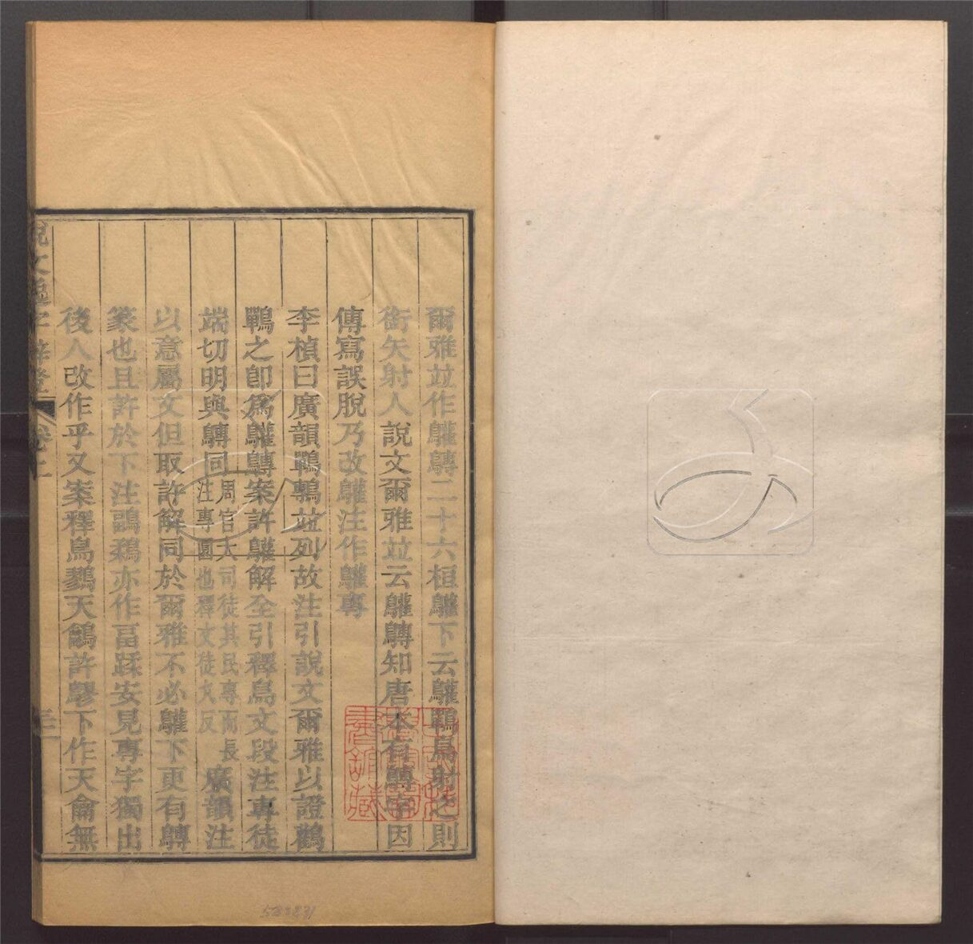 爾雅竝作鸛鷒二十六桓鸛下云鸛鷤鳥射之則
銜矢射人說文爾雅竝云鸛鷒知唐本有鷒字因
傳寫誤脫乃改鸛注作鸛專
李楨曰廣韻鷤鷒竝列故注引說文爾雅以證鸛
鷤之卽爲鸛鷒案許鸛解全引釋鳥文段注專徒
端切明與鷒同周官大司徒其民專而長
注專圜也釋文徒丸反廣韻注
以意屬文但取許解同於爾雅不必鸛下更有鷒
篆也且許於下注鶝鶔亦作畐蹂安見專字獨出
後人改作乎又案釋鳥鷚天鸙許鷚下作天龠無
說文逸字辨證
卷上